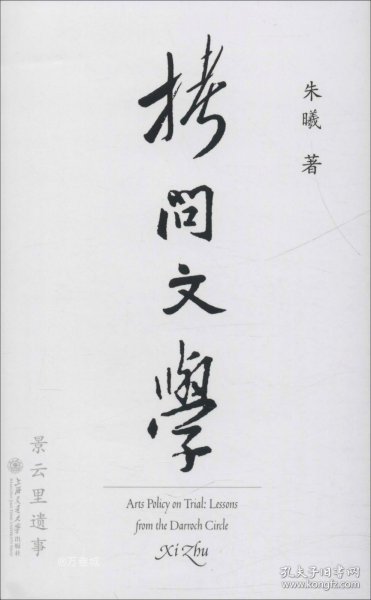 朱曦 著
拷問文學
景云里遗事
上海交通大学出版社
Arts Policy on Trial: Lessons
from the Darroch Circle
Xi Zhu
@万卷城
孔夫子旧书网